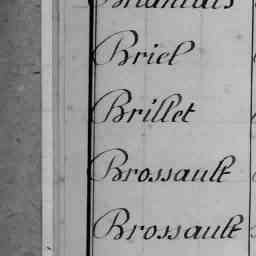 Briel
Brillet
Brossault
Brossault